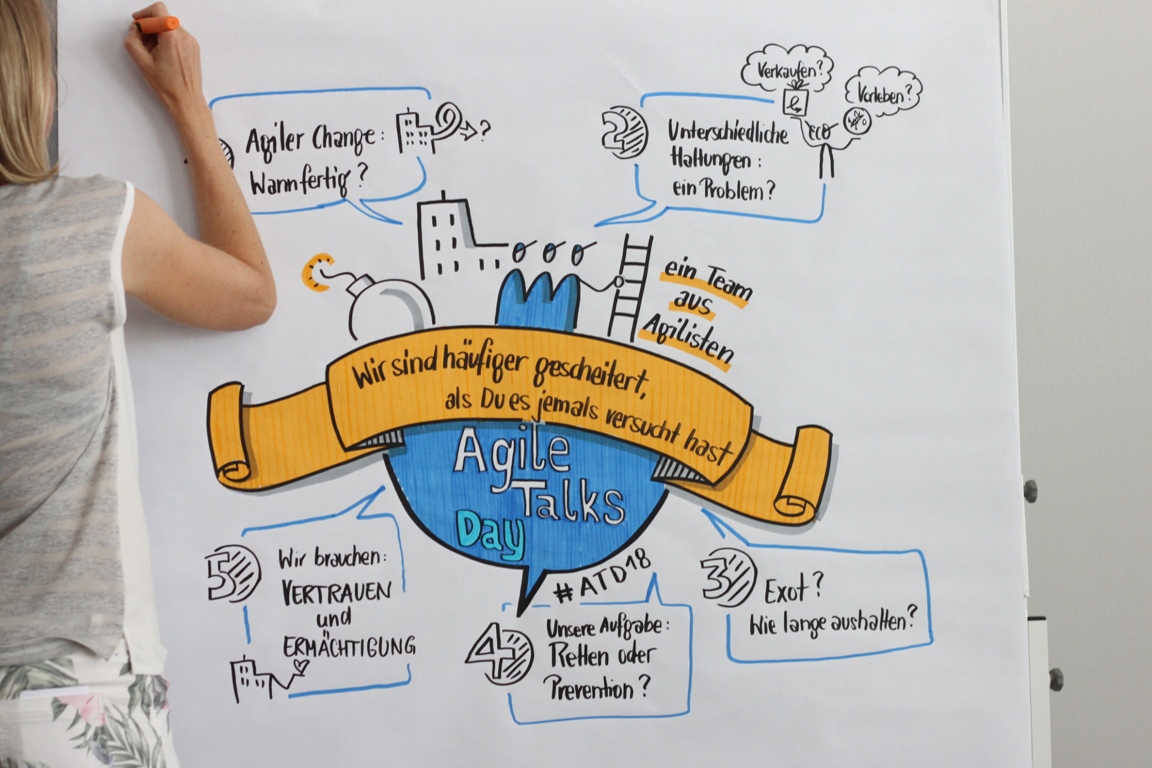 Agiler Change:
Wann fertig?
?
2
Unterschiedliche
Haltungen:
ein Problem?
Verkaufen?
Vorleben?
ein Team
aus
Agilisten
Wir sind häufiger gescheitert,
als Du es jemals versucht hast
Agile
Talks
Day
#ATD18
3
Exot?
Wie lange aushalten?
4
Unsere Aufgabe:
Retten oder
Prevention?
5
Wir brauchen:
VERTRAUEN
und
ERMÄCHTIGUNG